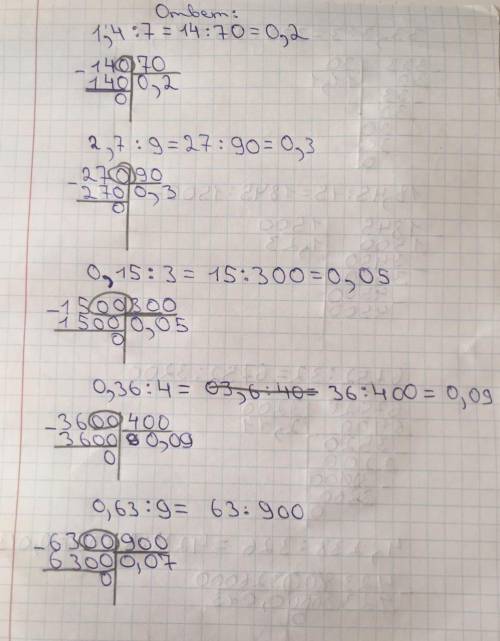 Ответ:
1,4:7=14:70=0,2
-140 70
140 0,2
0
2,7:9=27:90=0,3
-270 90
270 0,3
0
0,15:3=15:300=0,05
-1500 300
1500 0,05
0
0,36:4= 03,6:40= 36:400=0,09
-3600 400
3600 0,09
0
0,63:9= 63:900
-6300 900
6300 0,07
0